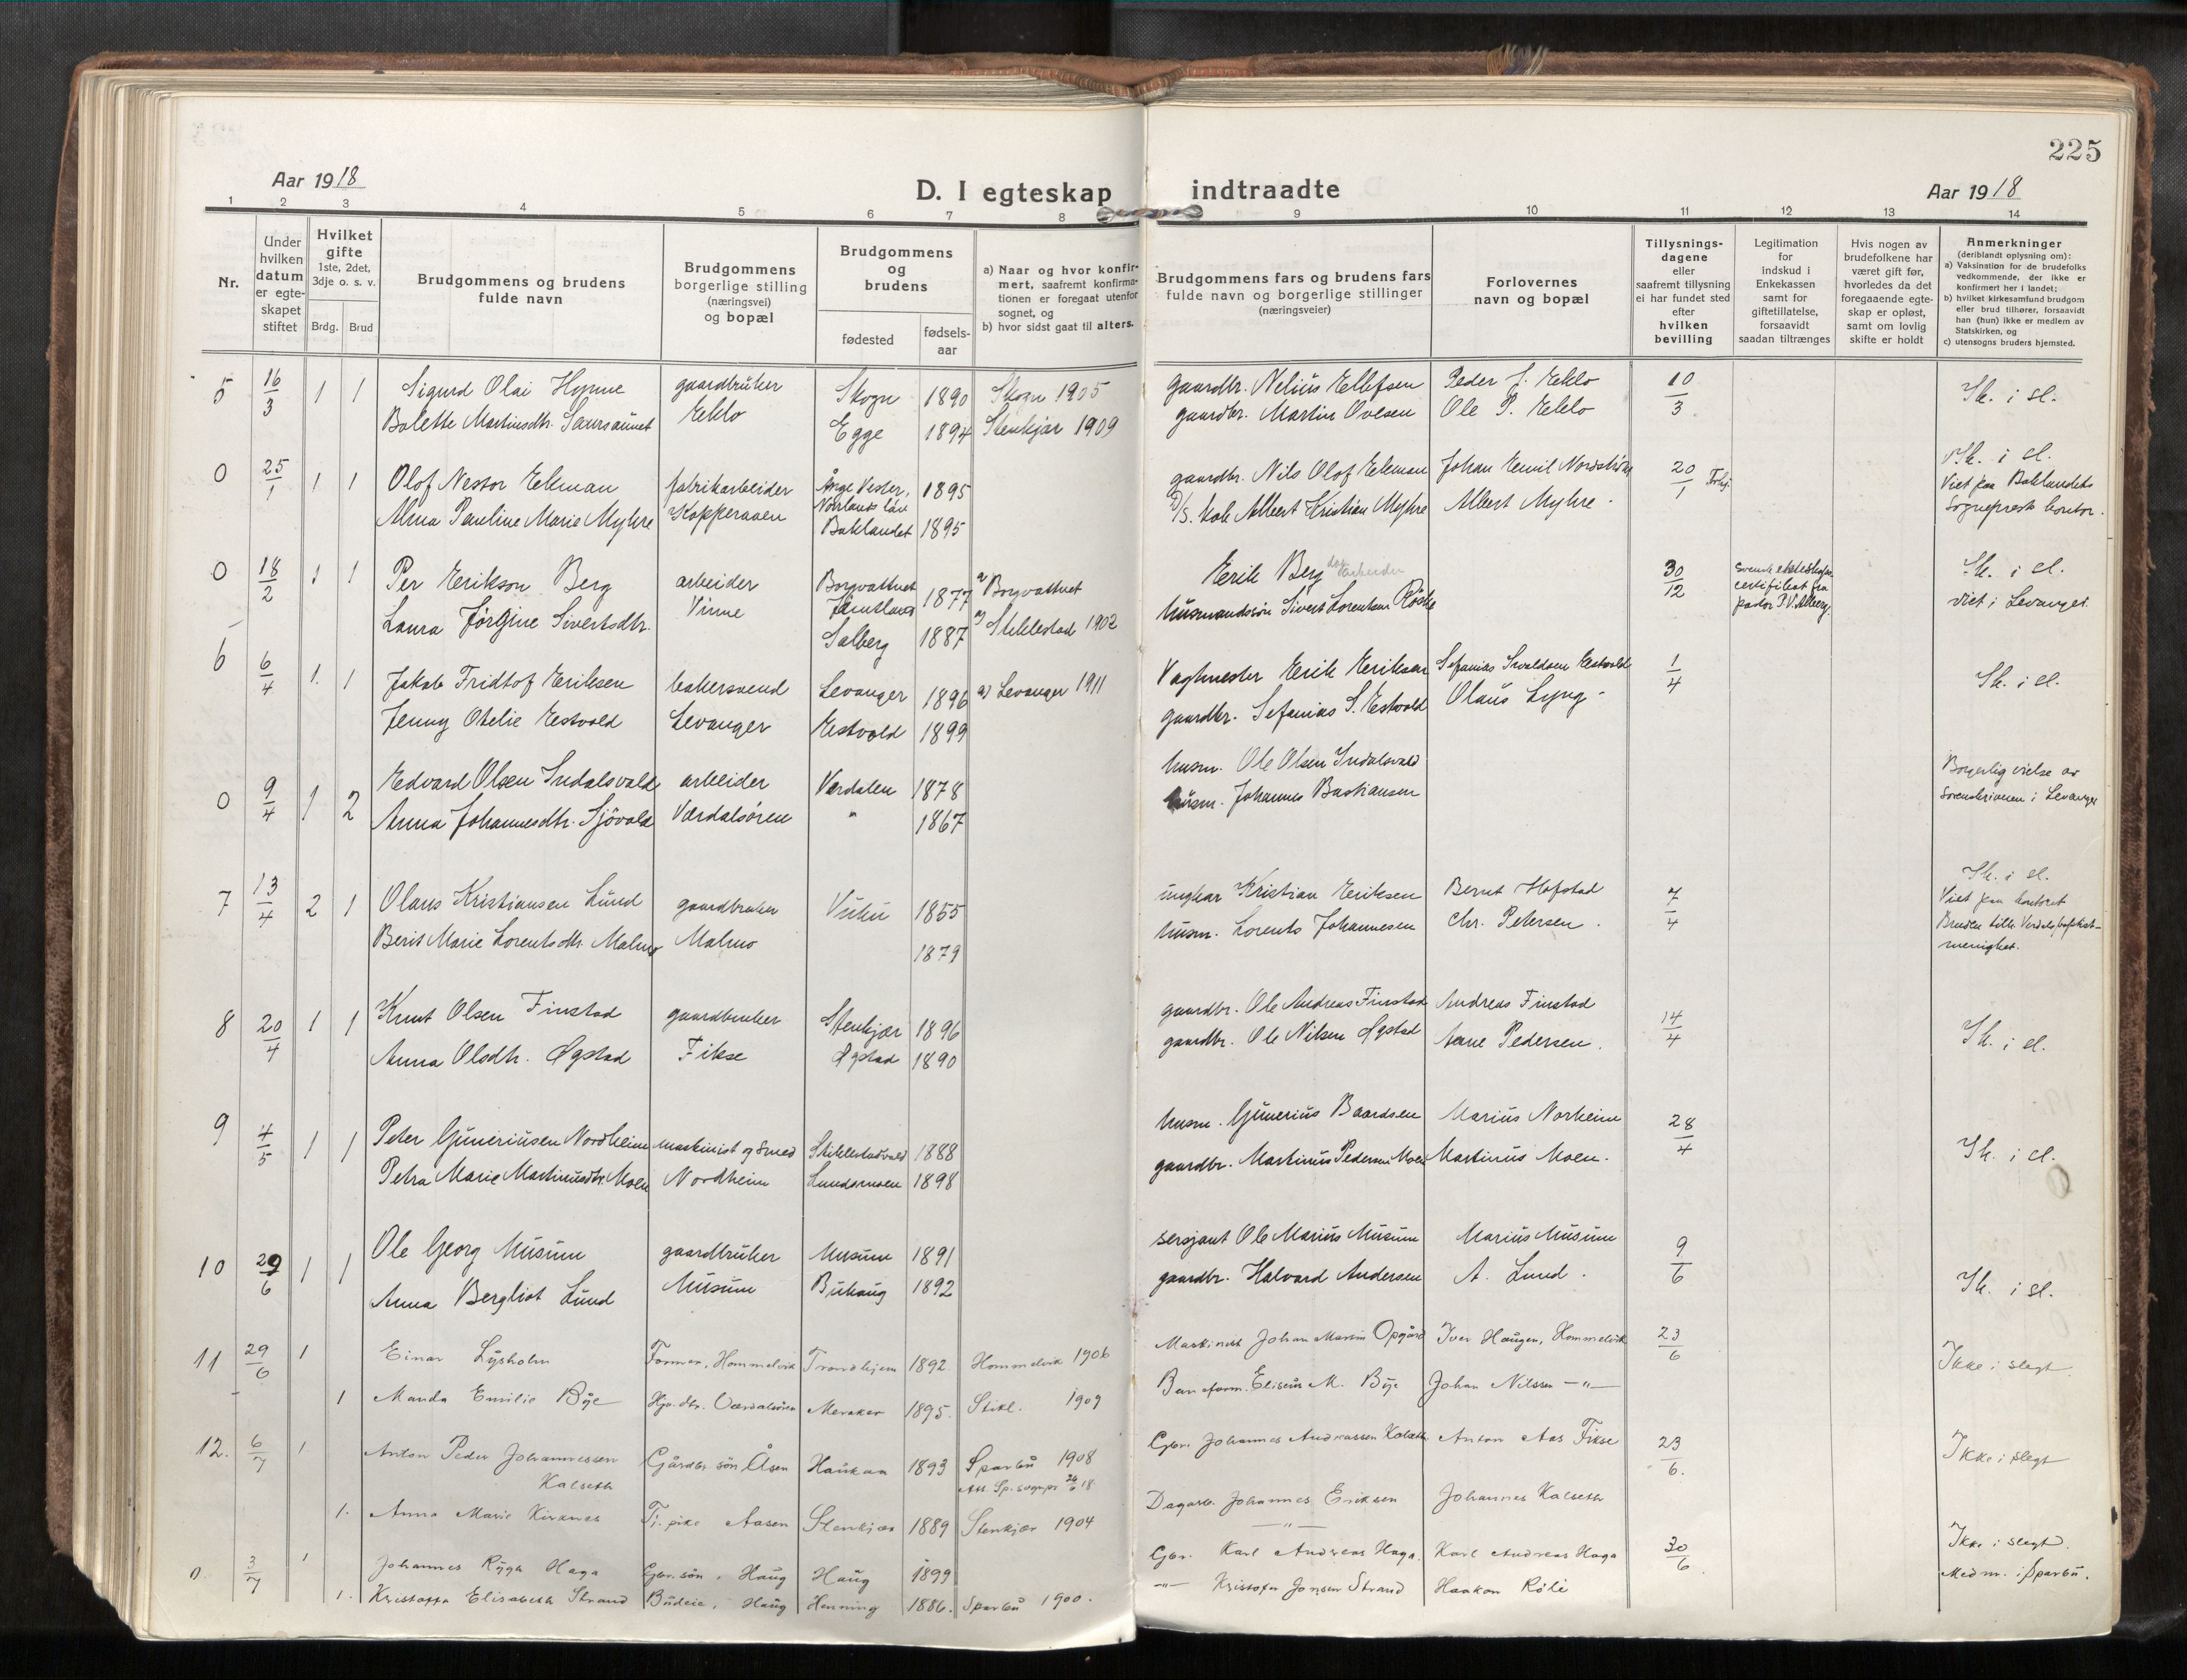 225
Aar 1918
D. I egteskap indtraadte
Aar 1918
1 2 3 4 5 6 7 8 9 10 11 12 13 14
Nr.
Under hvilken datum er egteskapet stiftet
Hvilket gifte 1ste, 2det, 3dje o. s. v.
Brdg. Brud
Brudgommens og brudens fulde navn
Brudgommens borgerlige stilling (næringsvei) og bopæl
Brudgommens og brudens
fødested
fødselsaar
a) Naar og hvor konfirmert, saafremt konfirmationen er foregaat utenfor sognet, og
b) hvor sidst gaat til alters.
Brudgommens fars og brudens fars fulde navn og borgerlige stillinger (næringsveier)
Forlovernes navn og bopæl
Tillysningsdagene eller saafremt tillysning ei har fundet sted efter hvilken bevilling
Legitimation for indskud i Enkekassen samt for giftetillatelse, forsaavidt saadan tiltrænges
Hvis nogen av brudefolkene har været gift før, hvorledes da det foregaaende egteskap er opløst, samt om lovlig skifte er holdt
Anmerkninger (deriblandt oplysning om):
a) Vaksination for de brudefolks vedkommende, der ikke er konfirmert her i landet;
b) hvilket kirkesamfund brudgom eller brud tilhører, forsaavidt han (hun) ikke er medlem av Statskirken, og
c) utensogns bruders hjemsted.
5 16/3 1 1 Sigurd Olai Hynne gaardbruker Skogn 1890 Skogn 1905 gaardbr. Nelius Ellefsen Peder J. Eklo 10/3 Ik. i sl.
Bolette Martinsdtr. Saursaunet Eklo Egge 1894 Stenkjær 1909 gaardbr. Martin Ovesen Ole P. Eklo
0 25/1 1 1 Olof Nestor Ekman fabrikarbeider Ånge Vester 1895 gaardbr. Nils Olof Ekman Johan Emil Nordström 20/1 Ik. i sl.
Alma Pauline Marie Myhre Kopperaaen Norlands län Albert Kristian Myhre Albert Myhre Viet paa Baklandets
Baklandet 1895 Sogneprest kontor.
0 18/2 1 1 Per Erikson Berg arbeider Borgvattnet Jämtland 1877 a) Borgvattnet Erik Berg arbeider 30/12 Ik. i sl.
Laura Jørgine Sivertsdtr. Vinne Salberg 1887 a) Stiklestad 1902 husmandssøn Sivert Lorentsen Røske Viet i Levanger.
6 6/4 1 1 Jakob Fridtof Eriksen bakersvend Levanger 1896 a) Levanger 1911 Vagtmester Erik Eriksen Sefanias Sivaldsen Eestvold 1/4 Ik. i sl.
Jenny Otelie Eestvold Levanger Eestvold 1899 gaardbr. Sefanias S. Eestvold Olaus Lyng
0 9/4 1 2 Edvard Olsen Indalsvald arbeider Værdalen 1878 husm. Ole Olsen Indalsvald Borgerlig vielse av
Anna Johannesdtr. Sjövold Værdalsøren " 1867 husm. Johannes Bastiansen Sorenskriveren i Levanger
7 13/4 2 1 Olaus Kristiansen Lund gaardbruker Vuku 1855 ungkar Kristian Eriksen Bernt Hofstad 7/4 Ik. i sl.
Beris Marie Lorentsdtr. Malmo Malmo 1879 husm. Lorents Johannesen Chr. Petersen Viet paa kontoret
menighet.
8 20/4 1 1 Knut Olsen Finstad gaardbruker Stenkjær 1896 gaardbr. Ole Andreas Finstad Andreas Finstad 14/4 Ik. i sl.
Anna Olsdtr. Øgstad Fikse Øgstad 1890 gaardbr. Ole Nilsen Øgstad Arne Pedersen
9 4/5 1 1 Peter Guneriusen Nordheim maskinist og smed Stiklestadvald 1888 husm. Gunerius Baardsen Marius Norheim 28/4 Ik. i sl.
Petra Marie Martinusdtr. Moen Nordheim Lundsmoen 1898 gaardbr. Martinus Pedersen Moen Martinus Moen.
10 29/6 1 1 Ole Georg Musum gaardbruker Musum 1891 sersjant Ole Marius Musum Marius Musum 9/6 Ik. i sl.
Anna Bergliot Lund Musum Buhaug 1892 gaardbr. Halvard Andersen A. Lund.
11 29/6 1 Einar Lysholm Former, Hommelvik Trondhjem 1892 Hommelvik 1906 Maskinist Johan Martin Opgård Iver Haugen, Hommelvik 23/6 Ikke i slegt
1 Manda Emilie Bye Hjv. dtr. Værdalsøren Meraker 1895. Stikl. 1909 Baneform. Eliseus M. Bye Johan Nilssen —"—
12. 6/7 1 Anton Peder Johannessen Kalseth Gårdbr søn, Åsen Haukaa 1893 Sparbu 1908 Gbr. Johannes Andreassen Kalseth Anton Aas Fikse 23/6. Ikke i slegt
1. Anna Marie Kirknes Tj. pike Aasen Stenkjær 1889 Stenkjær 1904 Dagarb. Johannes Eriksen —"— Johannes Kalseth
0 3/7 1 Johannes Rygh Haga Gbr. søn, Haug Haug 1899 Gbr. Karl Andreas Haga. Karl Andreas Haga 30/6 Ikke i slegt.
1. Kristoffa Elisabeth Strand Budeie, Haug Henning 1886. Sparbu 1900. —"— Kristofer Jonsen Strand Haakon Röli Med m. i Sparbu.